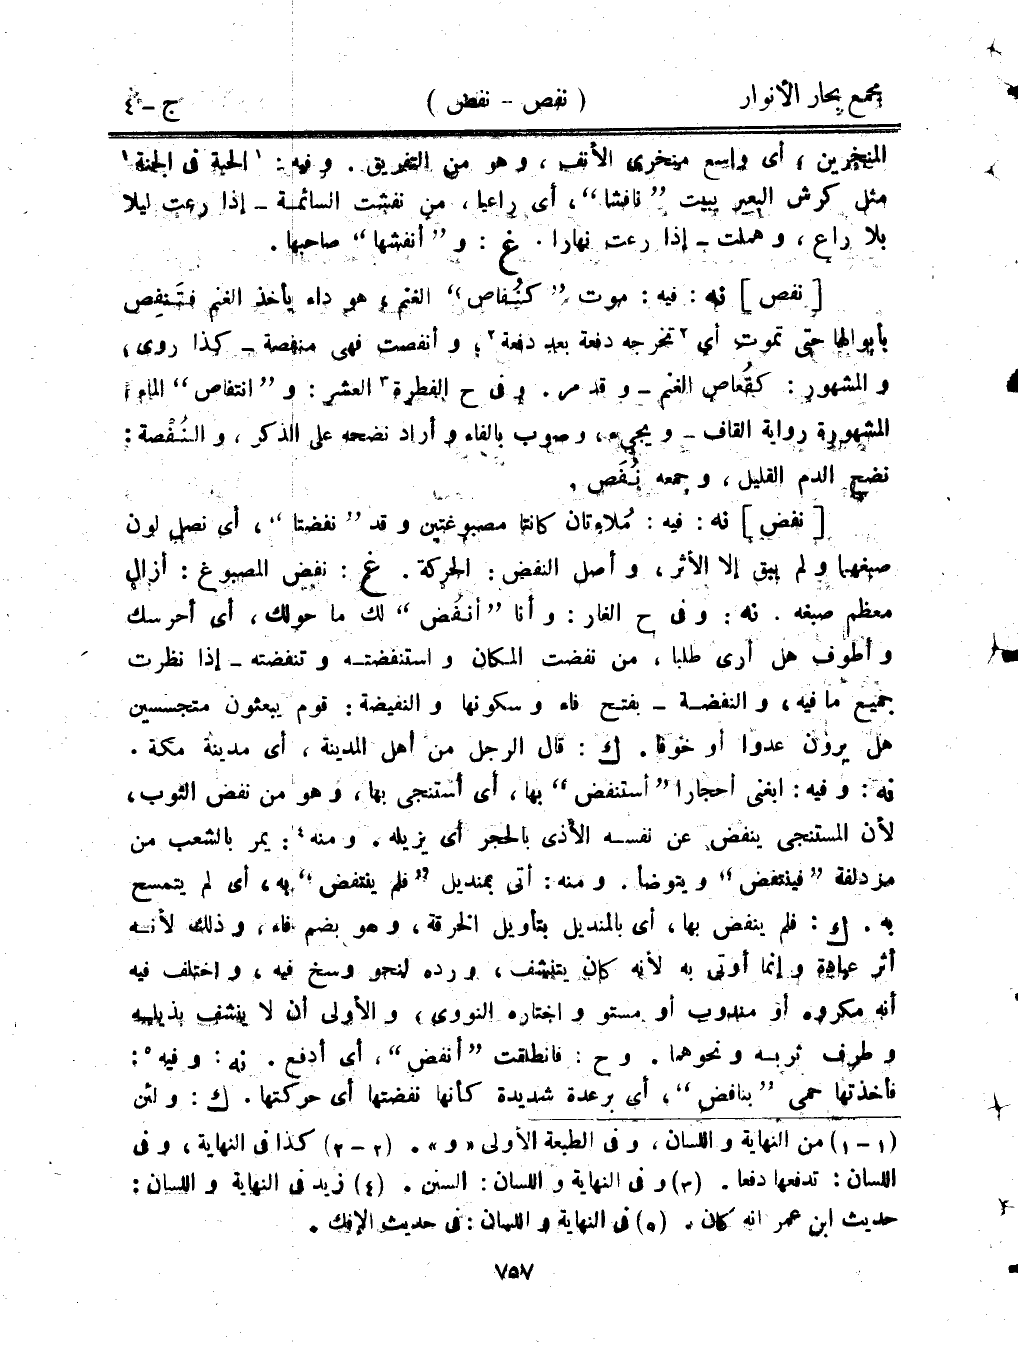 مجمع بحار الأنوار ( نفص - نفض ) ج - ٤
المنخرين، أى واسع منخرى الأنف، و هو من التفريق. و فيه: ١ الحبة فى الجنة ١
مثل كرش البعير يبيت ”نافشا“، أى راعيا، من نفشت السائمة - إذا رعت ليلا
بلا راع، و هملت - إذا رعت نهارا. غ: و ”أنفشها“ صاحبها.
[ نفص ] نه: فيه: موت ”كنُفاص“ الغنم، هو داء يأخذ الغنم فتَنفص
بأبوالها حتى تموت أي ٢ تخرجه دفعة بعد دفعة ٢، و أنفصت فهى منفصة - كذا روى،
و المشهور: كقُعاص الغنم - و قد مر. و فى ح الفطرة ٣ العشر: و ”انتفاص“ الماء،
المشهورة رواية القاف - و يجىء، و صوب بالفاء و أراد نضحه على الذكر، و النُفْصة:
نضح الدم القليل، و جمعه نُفَص.
[ نفض ] نه: فيه: مُلاءتان كانتا مصبوغتين و قد ”نفضتا“، أى نصل لون
صبغهما و لم يبق إلا الأثر، و أصل النفض: الحركة. غ: نفض المصبوغ: أزال
معظم صبغه. نه: و فى ح الغار: و أنا ”أنفُض“ لك ما حولك، أى أحرسك
و أطوف هل أرى طلبا، من نفضت المكان و استنفضته و تنفضته - إذا نظرت
جميع ما فيه، و النفضة - بفتح فاء و سكونها و النفيضة: قوم يبعثون متجسسين
هل يرون عدوا أو خوفا. ك: قال الرجل من أهل المدينة، أى مدينة مكة.
نه: و فيه: ابغنى أحجارا ”أستنفض“ بها، أى أستنجى بها، و هو من نفض الثوب،
لأن المستنجى ينفض عن نفسه الأذى بالحجر أى يزيله. و منه ٤: يمر بالشعب من
مزدلفة ”فينتفض“ و يتوضأ. و منه: أتى بمنديل ”فلم ينتفض“ به، أى لم يتمسح
به. ك: فلم ينفض بها، أى بالمنديل بتأويل الخرقة، و هو بضم فاء، و ذلك لأنه
أثر عبادة و إنما أوتى به لأنه كان يتنشف، و رده لنحو وسخ فيه، و اختلف فيه
أنه مكروه أو مندوب أو مستو و اختاره النووي، و الأولى أن لا ينشف بذيله
و طرف ثوبه و نحوهما. و ح: فانطلقت ”أنفض“، أى أدفع. نه: و فيه ٥:
فأخذتها حمى ”بنافض“، أي برعدة شديدة كأنها نفضتها أى حركتها. ك: و لئن
(١-١) من النهاية و اللسان، و فى الطبعة الأولى «و». (٢-٢) كذا فى النهاية، و فى
اللسان: تدفعها دفعا. (٣) و فى النهاية و اللسان: السنن. (٤) زيد فى النهاية و اللسان:
حديث ابن عمر انه كان. (٥) فى النهاية و اللسان: فى حديث الإفك.
٧٥٧